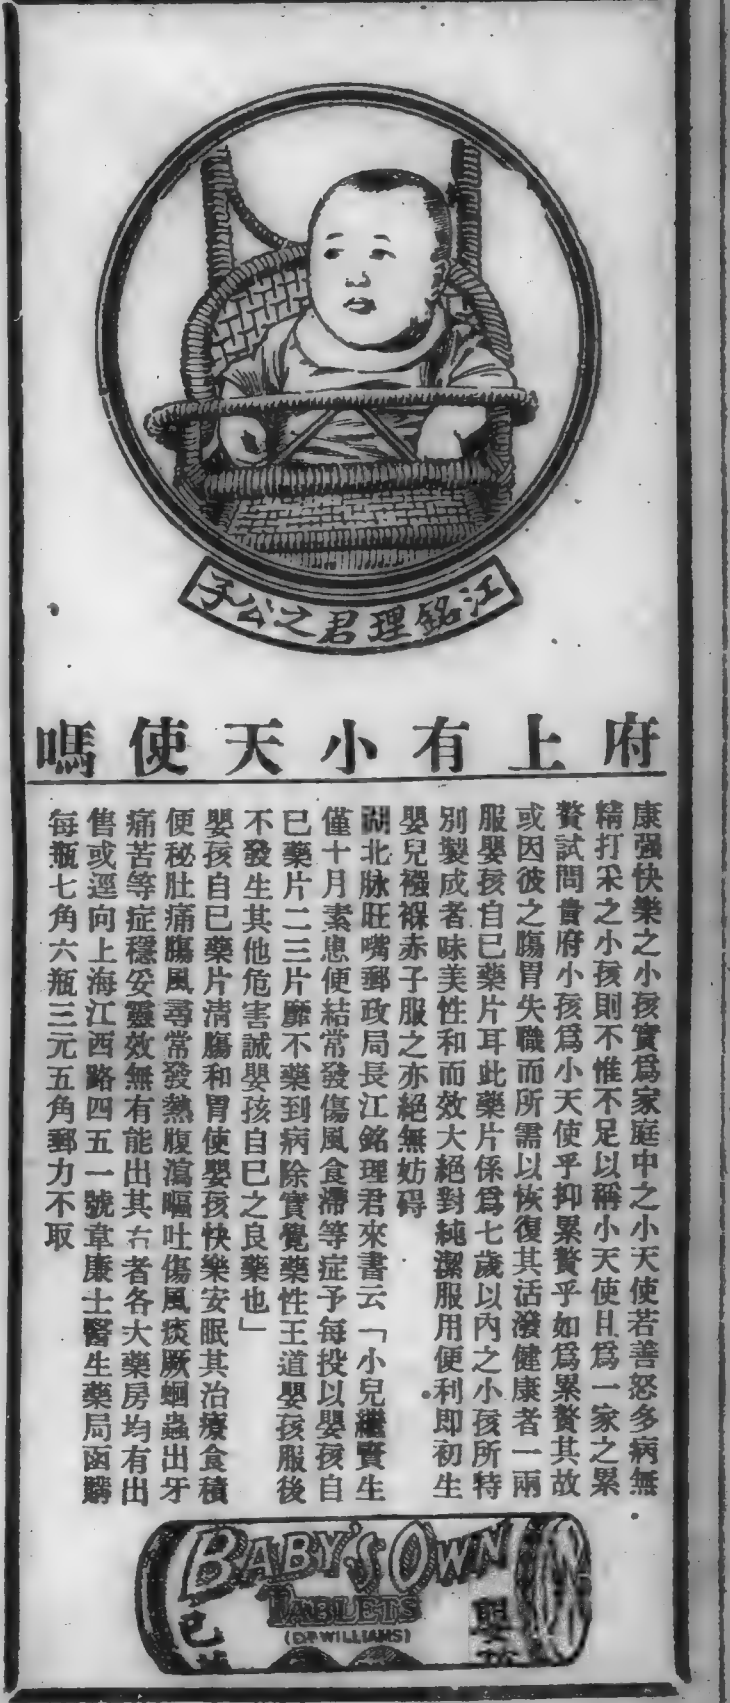 江銘理君之公子
府上有小天使嗎
康强快樂之小孩實爲家庭中之小天使若善怒多病無
精打采之小孩則不惟不足以稱小天使且爲一家之累
贅試問貴府小孩爲小天使乎抑累贅乎如爲累贅其故
或因彼之腸胃失職而所需以恢復其活潑健康者一兩
服嬰孩自已藥片耳此藥片係爲七歲以內之小孩所特
別製成者味美性和而效大絕對純潔服用便利即初生
嬰兒襁褓赤子服之亦絕無妨碍
湖北脉旺嘴郵政局長江銘理君來書云「小兒繼寶生
僅十月素患便結常發傷風食滯等症予每投以嬰孩自
已藥片二三片靡不藥到病除實覺藥性王道嬰孩服後
不發生其他危害誠嬰孩自已之良藥也」
嬰孩自已藥片清腸和胃使嬰孩快樂安眠其治療食積
便秘肚痛腸風尋常發熱腹瀉嘔吐傷風痰厥蛔蟲出牙
痛苦等症穩妥靈效無有能出其右者各大藥房均有出
售或逕向上海江西路四五一號韋廉士醫生藥局函購
每瓶七角六瓶三元五角郵力不取
BABY'S OWN
TABLETS
(DR WILLIAMS)
嬰孩
已